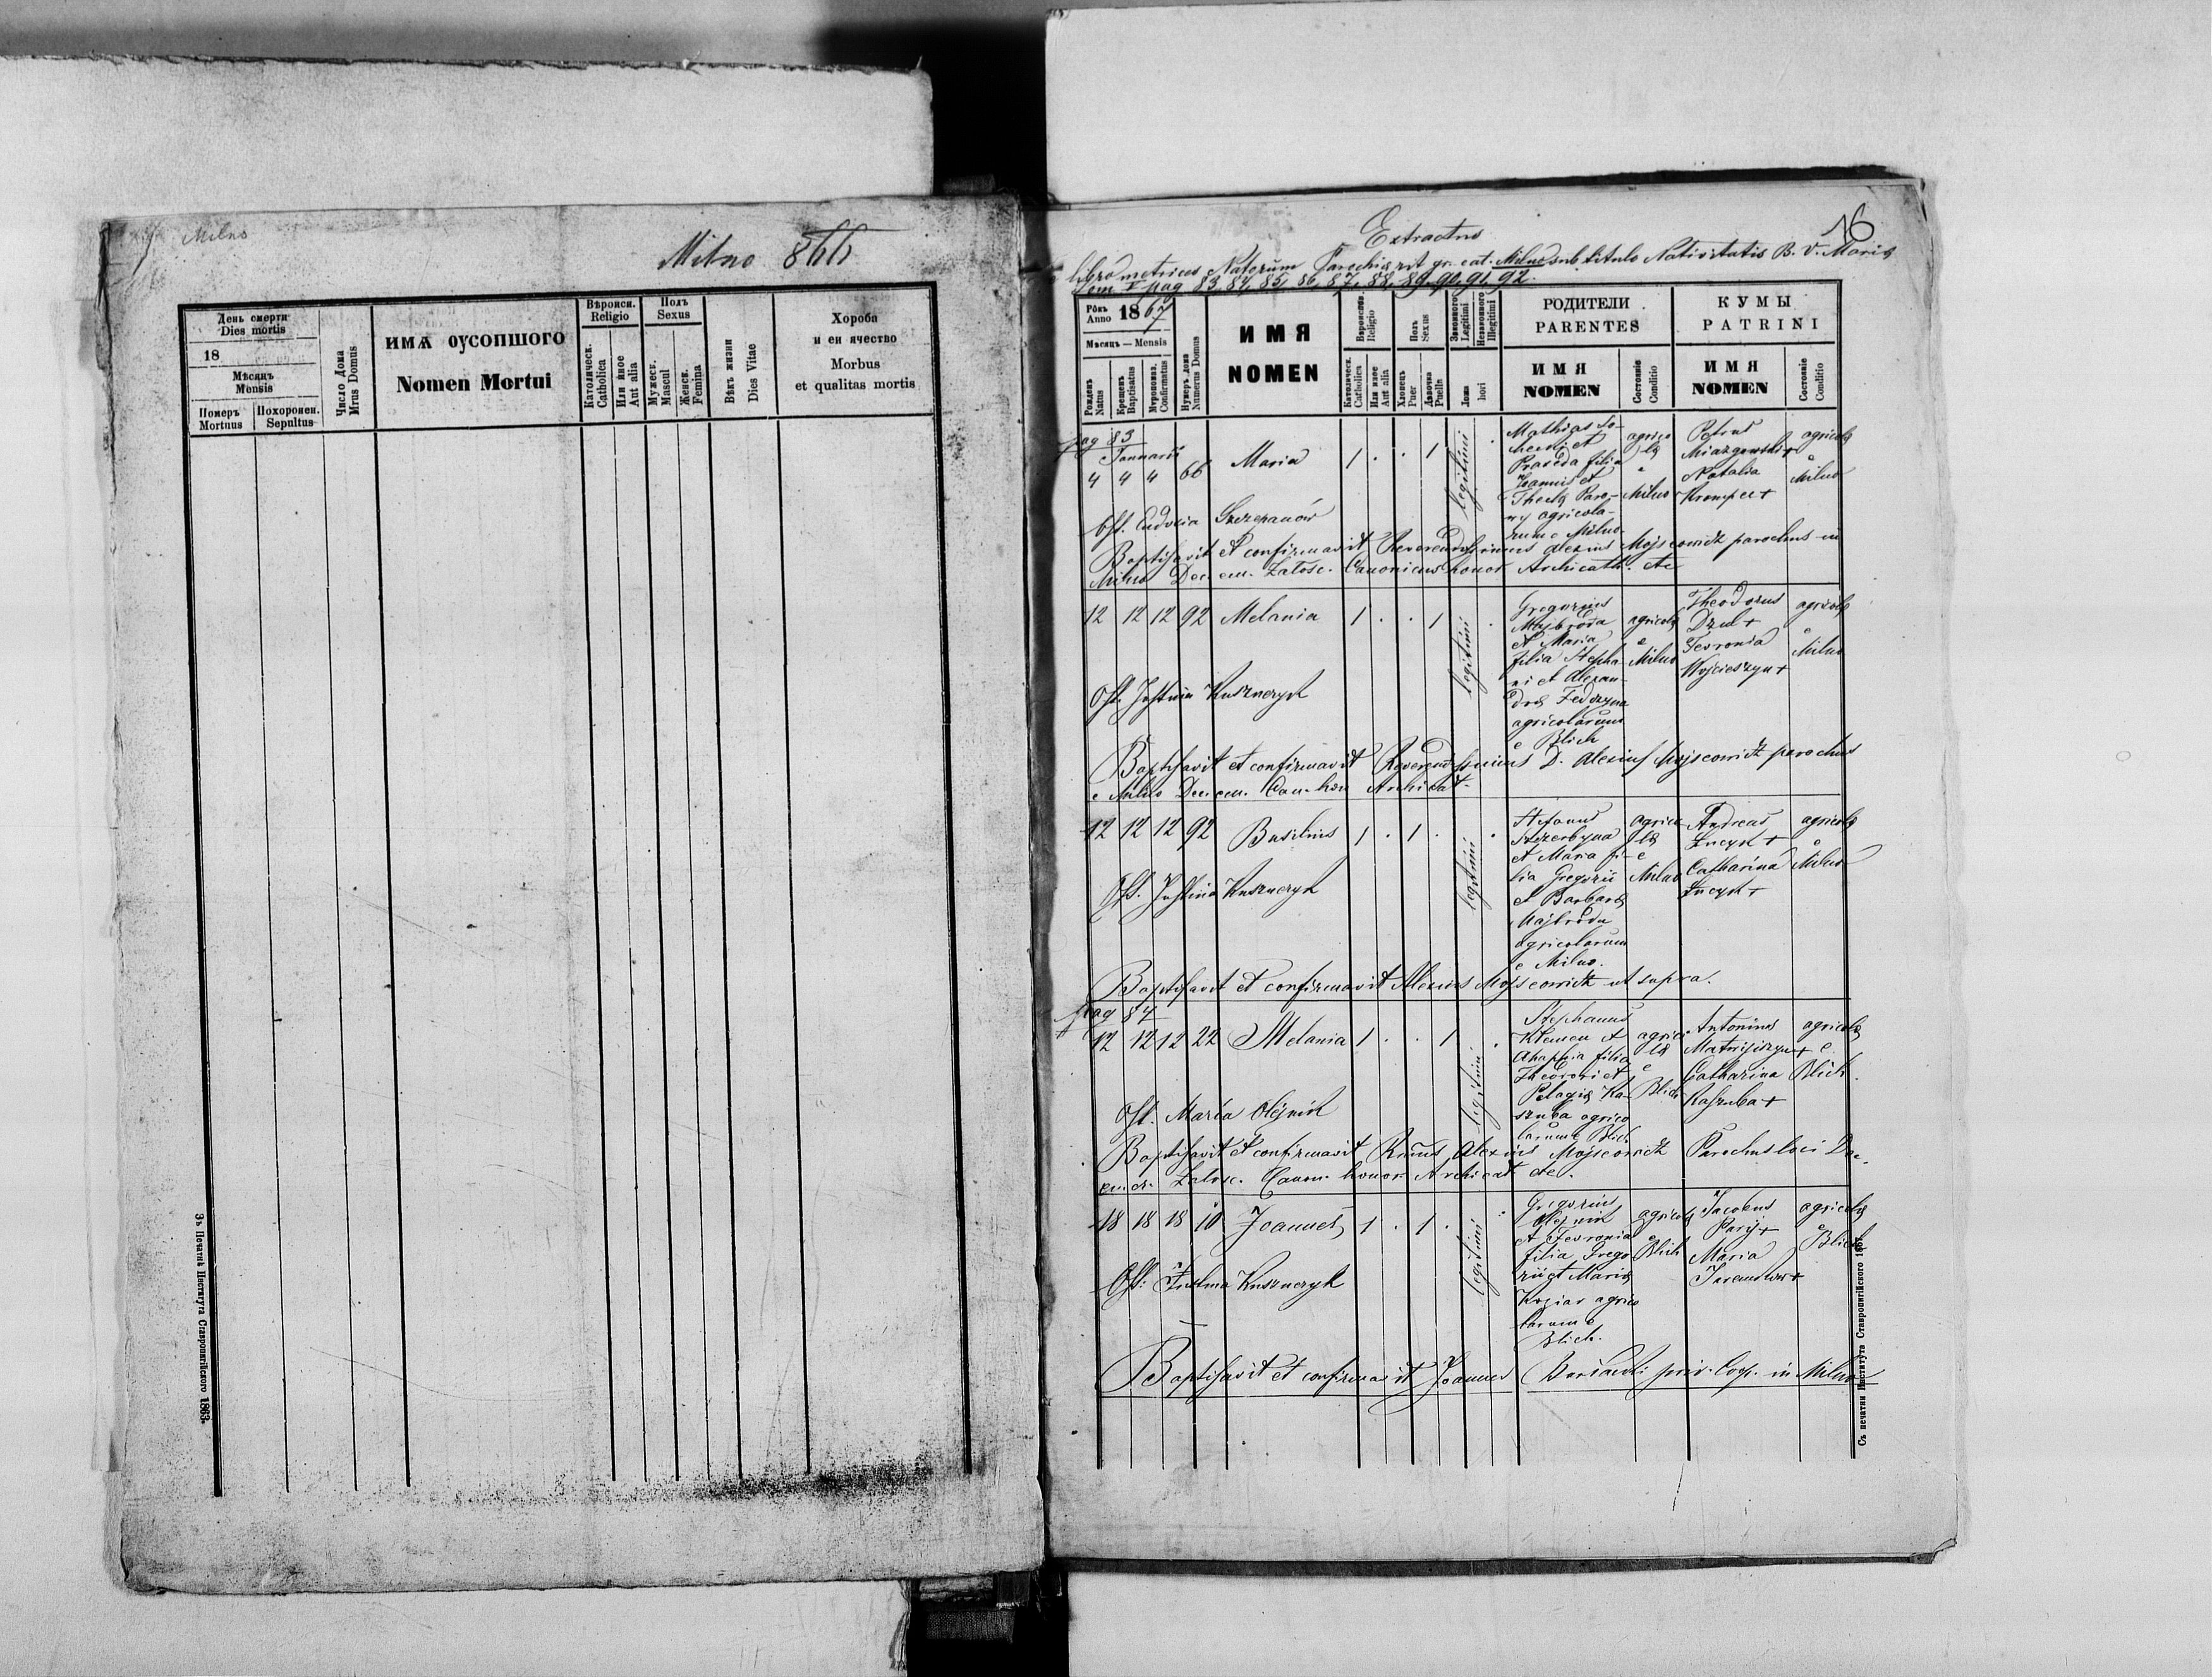 Milno
Milno 866
День смерти
Dies mortis
18
Мѣсяцъ
Mensis
Померъ
Mortuus
Похоронен.
Sepultus
Число Дома
Nrus Domus
ИМѦ ОУСОПШОГО
Nomen Mortui
Вѣроисп.
Religio
Католическ.
Catholica
Или иное
Aut alia
Полъ
Sexus
Мужеск.
Mascul
Женск.
Femina
Вѣкъ жизни
Dies Vitae
Хороба
и еи ячество
Morbus
et qualitas mortis
Зъ Печатнѣ Института Ставропигійского 1863.
16
Extractus
libro metrices Natorum Parochiæ rit. gr. cat. Milno sub titulo Nativitatis B. V. Mariæ
tom. V pag 83, 84, 85, 86, 87, 88, 89, 90, 91, 92.
Рôкъ
Anno 1867
Мѣсяцъ — Mensis
Рожденъ
Natus
Крещенъ
Baptisatus
Мѵропомаз.
Confirmatus
Нумеръ дома
Numerus Domus
ИМЯ
NOMEN
Вѣроиспов.
Religio
Католическ.
Catholica
Или иное
Aut alia
Полъ
Sexus
Хлопецъ
Puer
Дѣвочка
Puella
Законного
Legitimi
Незаконного
Illegitimi
Ложа
tori
РОДИТЕЛИ
PARENTES
ИМЯ
NOMEN
Состоянiе
Conditio
КУМЫ
PATRINI
ИМЯ
NOMEN
Состоянiе
Conditio
pag 83
Januarii
4 4 4 66 Maria 1 . . 1 legitimi .
Mathias
et
filia
Joannis et
Theclæ
agricola-
rum e Milno
agrico
læ
e
Milno
Petrus
+
Natalia
Krompec +
agricolæ
e
Milno
Obst. Eudocia Szczepanów
Baptisavit et confirmavit Reverendissimus Alexius Mojseowicz parochus in
Milno Dec. em. Zalosc. Canonicus honor Archicath. etc
12 12 12 92 Melania 1 . . 1 legitimi .
Gregorius
Majbroda
et Maria
filia Stepha-
ni et Alexan-
dræ Fedczyna
agricolarum
e Blich
agricolæ
e
Milno
Theodorus
Dzul +
Fevronia
Wojcieszyn +
agricolæ
e
Milno
Obst. Justina Kuszneryk
Baptisavit et confirmavit Reverendissimus D. Alexius Mojseowicz parochus
e Milno Dec. em. Can. hon Archicat.
12 12 12 92 Basilius 1 . 1 . legitimi .
Stefanus
Szczerbyna
et Maria fi-
lia Gregorii
et Barbaræ
Majbroda
agricolarum
e Milno.
agrico
læ
e
Milno
Andreas
Łucyk +
Catharina
Łucyk +
agricolæ
e
Milno
Obst. Justina Kuszneryk
Baptisavit et confirmavit Alexius Mojseowicz ut supra.
pag 84
12 12 12 22 Melania 1 . . 1 legitimi .
Stephanus
Klemen et
Ahaphia filia
Theodori et
Pelagiæ Ka-
szuba agrico
larum e Blich
agrico
læ
e
Blich
Antonius
Matwijiszyn +
Catharina
Kaszuba +
agricolæ
e
Blich.
Obst. Maria Olejnik
Baptisavit et confirmavit Rmus Alexius Mojseowicz Parochus loci Dec.
em. Zalosc. Canon. honor. Archicat etc.
18 18 18 10 Joannes 1 . 1 . legitimi .
Gregorius
Olejnik
et Fevronia
filia Grego
rii et Mariæ
Koziar agrico
larum e
Blich.
agricolæ
e
Blich
Jacobus
Paryj +
Maria
+
agricolæ
e
Blich
Obst: Justina Kuszneryk
Baptisavit et confirmavit Joannes priv. Coop. in Milno
Съ печатни Института Ставропигійского 1867.